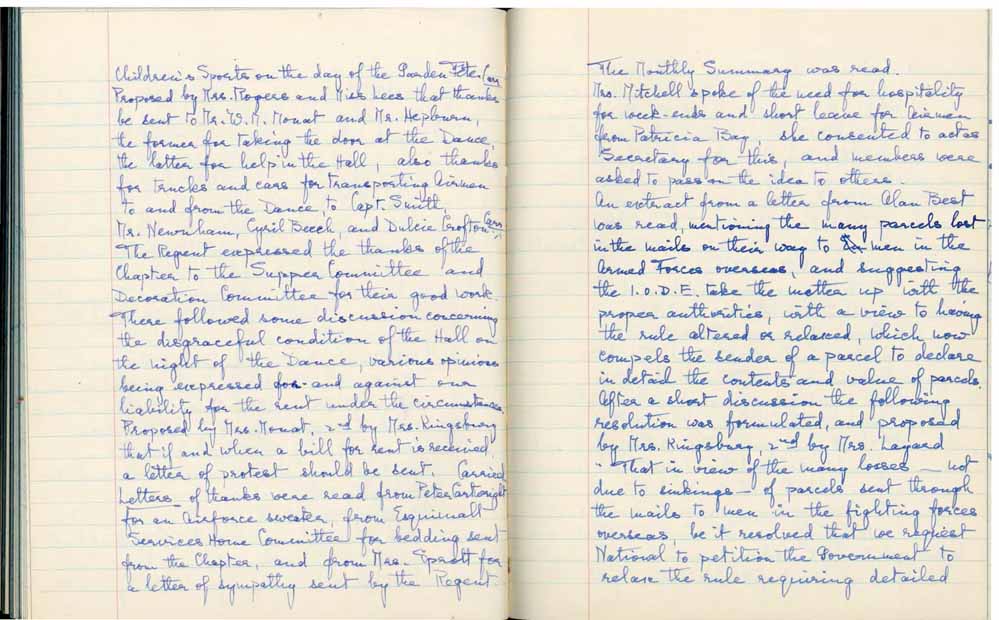 Children's Sports on the day of the Garden Fête. Carr
Proposed by Mrs. Rogers and Miss Lees that thanks
be sent to Mr. W. M. Mouat and Mr. Hepburn,
the former for taking the door at the Dance,
the latter for help in the Hall, also thanks
for trucks and cars for transporting Airmen
to and from the Dance to Capt. Smith,
Mr. Newnham, Cyril Beech, and Dulcie Crofton. Carr.
The Regent expressed the thanks of the
Chapter to the Supper Committee and
Decoration Committee for their good work.
There followed some discussion concerning
the disgraceful condition of the Hall on
the night of the Dance, various opinions
being expressed for and against our
liability for the rent under the circumstances.
Proposed by Mrs. Mouat, 2nd by Mrs. Kingsbury
that if and when a bill for rent is received,
a letter of protest should be sent. Carried
Letters of thanks were read from Peter Cartwright
for an Airforce sweater, from Esquimalt
Services Home Committee for bedding sent
from the Chapter, and from Mrs. Spratt for
a letter of sympathy sent by the Regent
The Monthly Summary was read.
Mrs. Mitchell spoke of the need for hospitality
for week-ends and short leave for Airmen
from Patricia Bay, she consented to act as
Secretary for this, and members were
asked to pass on the idea to others.
An extract from a letter from Alan Best
was read, mentioning the many parcels lost
in the mails on their way to men in the
Armed Forces overseas, and suggesting
the I.O.D.E. take the matter up with the
proper authorities, with a view to having
the rule altered or relaxed, which now
compels the sender of a parcel to declare
in detail the contents and value of parcels.
After a short discussion the following
resolution was formulated, and proposed
by Mrs. Kingsbury, 2nd by Mrs. Layard
"That in view of the many losses — not
due to sinkings — of parcels sent through
the mails to men in the fighting forces
overseas, be it resolved that we request
National to petition the Government to
relax the rule requiring detailed